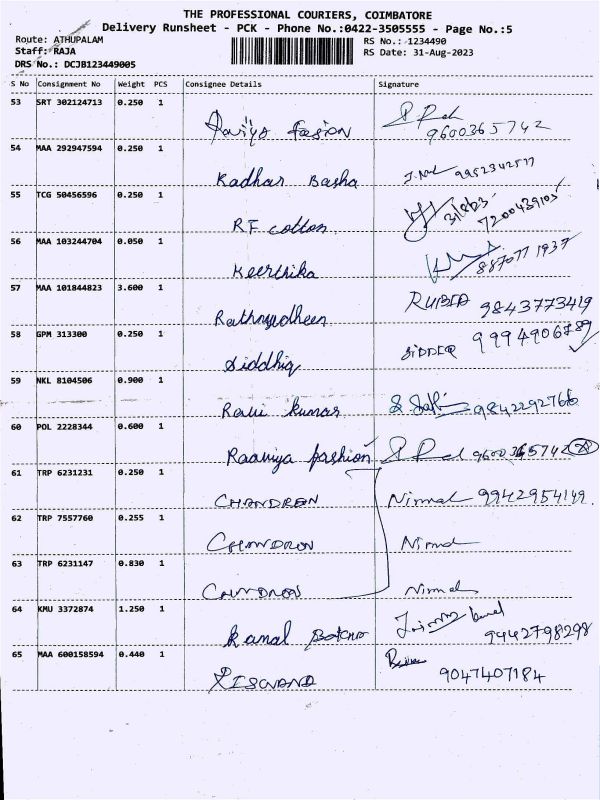 THE PROFESSIONAL COURIERS, COIMBATORE
Delivery Runsheet - PCK - Phone No.:0422-3505555 - Page No.:5
Route: ATHUPALAM
RS No.: 1234490
Staff: RAJA
RS Date: 31-Aug-2023
DRS No.: DCJB123449005
S No Consignment No Weight PCS Consignee Details Signature
53 SRT 302124713 0.250 1
9600365742
54 MAA 292947594 0.250 1
Kadhar Basha
55 TCG 50456596 0.250 1
RF cotton 31/8/23 7200439105
56 MAA 103244704 0.050 1
Keerthika 887077 1937
57 MAA 101844823 3.600 1
RUBIA 9843773419
58 GPM 313300 0.250 1
Siddhiq SIDDEQ 9994906789
59 NKL 8104506 0.900 1
Ravi kumar 9842292766
60 POL 2228344 0.600 1
Raaviya fashion 9600365742
61 TRP 6231231 0.250 1
CHANDRAN Nirmal 9942954149
62 TRP 7557760 0.255 1
CHANDRON Nirmal
63 TRP 6231147 0.830 1
Nirmal
64 KMU 3372874 1.250 1
Kamal 9442798298
65 MAA 600158594 0.440 1
9047407184